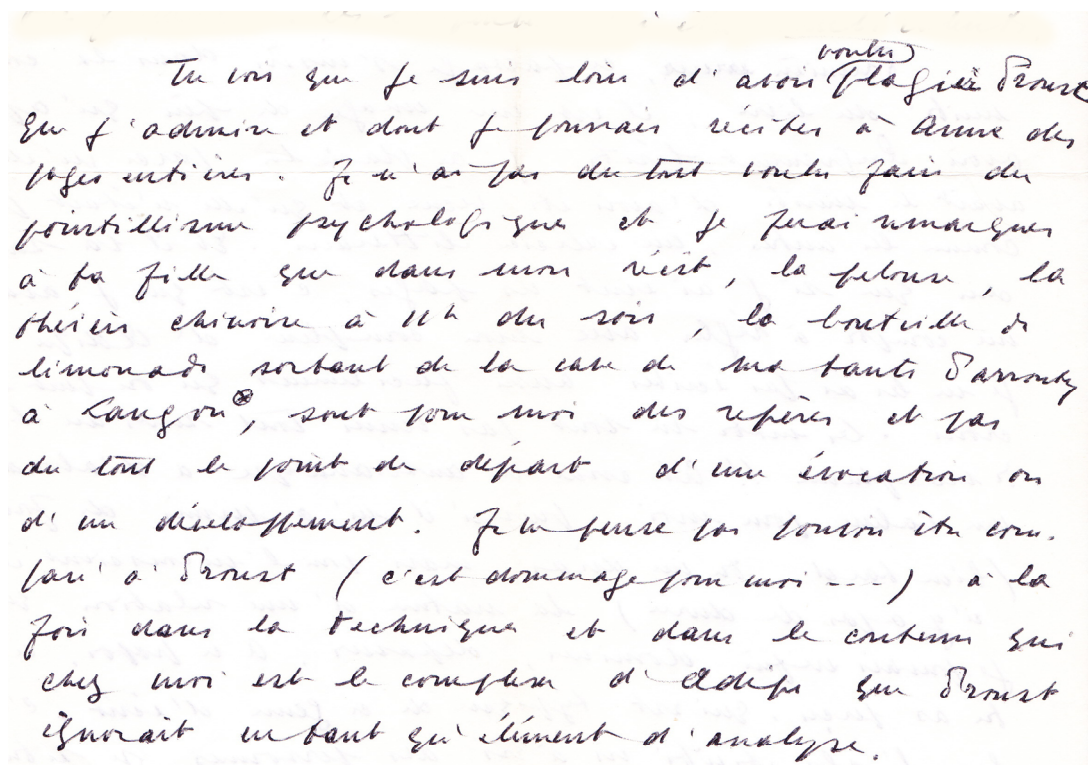 Tu vois que je suis loin d'avoir voulu plagier Proust
que j'admire et dont je pourrais réciter à Anne des
pages entières. Je n'ai pas du tout voulu faire du
pointillisme psychologique et je ferai remarquer
à ta fille que dans mon récit, la pelouse, la
théière chinoise à 11h du soir, la bouteille de
limonade sortant de la cave de ma tante
à Langon⊗, sont pour moi des repères et pas
du tout le point de départ d'une évocation ou
d'un développement. Je ne pense pas pouvoir être com-
paré à Proust (c'est dommage pour moi ---) à la
fois dans la technique et dans le contenu qui
chez moi est le complexe d'Œdipe que Proust
ignorait en tant qu'élément d'analyse.